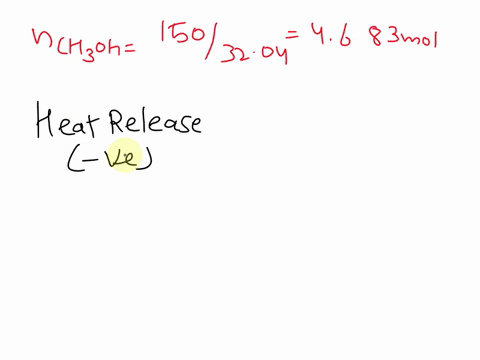 nCH3Oh= 150/32.04 = 4.6 83mol
Heat Release
(-ve)